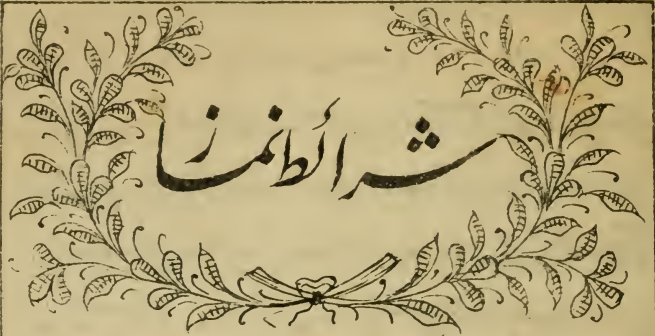 شرائط نماز